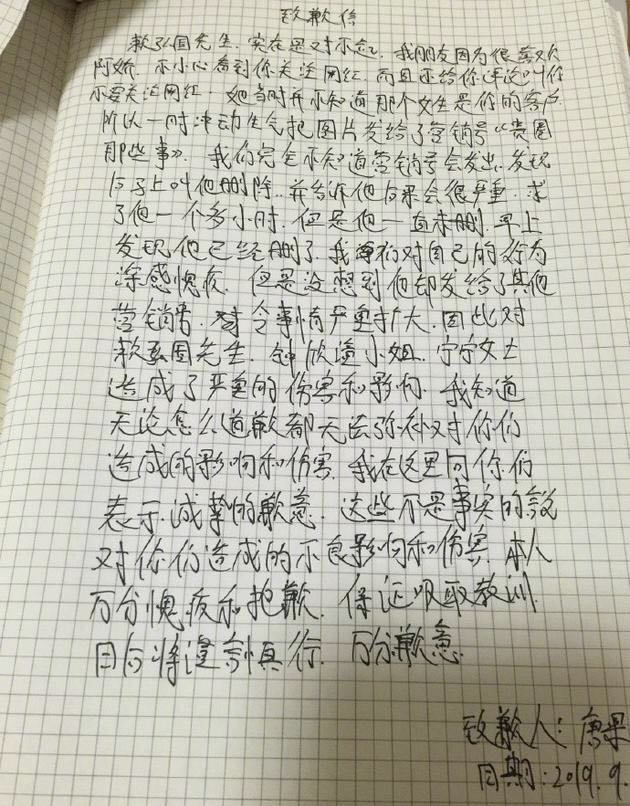 致歉信
赖弘国先生，实在是对不起，我朋友因为很喜欢
阿娇，不小心看到你关注网红，而且还给你评论叫你
不要关注网红，她当时并不知道那个女生是你的客户
所以一时冲动生气把图片发给了营销号《贵圈
那些事》，我们完全不知道营销号会发出，发现
后马上叫他删除，并告诉他后果会很严重，求
了他一个多小时，但是他一直未删，早上
发现他已经删了，我们对自己的行为
深感愧疚，但是没想到他却发给了其他
营销号，令事情严重扩大，因此对
赖弘国先生，钟欣潼小姐，宁宁女士
造成了严重的伤害和影响，我知道
无论怎么道歉都无法弥补对你们
造成的影响和伤害，我在这里向你们
表示诚挚的歉意，这些不是事实的
对你们造成的不良影响和伤害，本人
万分愧疚和抱歉，保证吸取教训
日后将谨言慎行，万分歉意
致歉人：唐果
日期：2019.9.